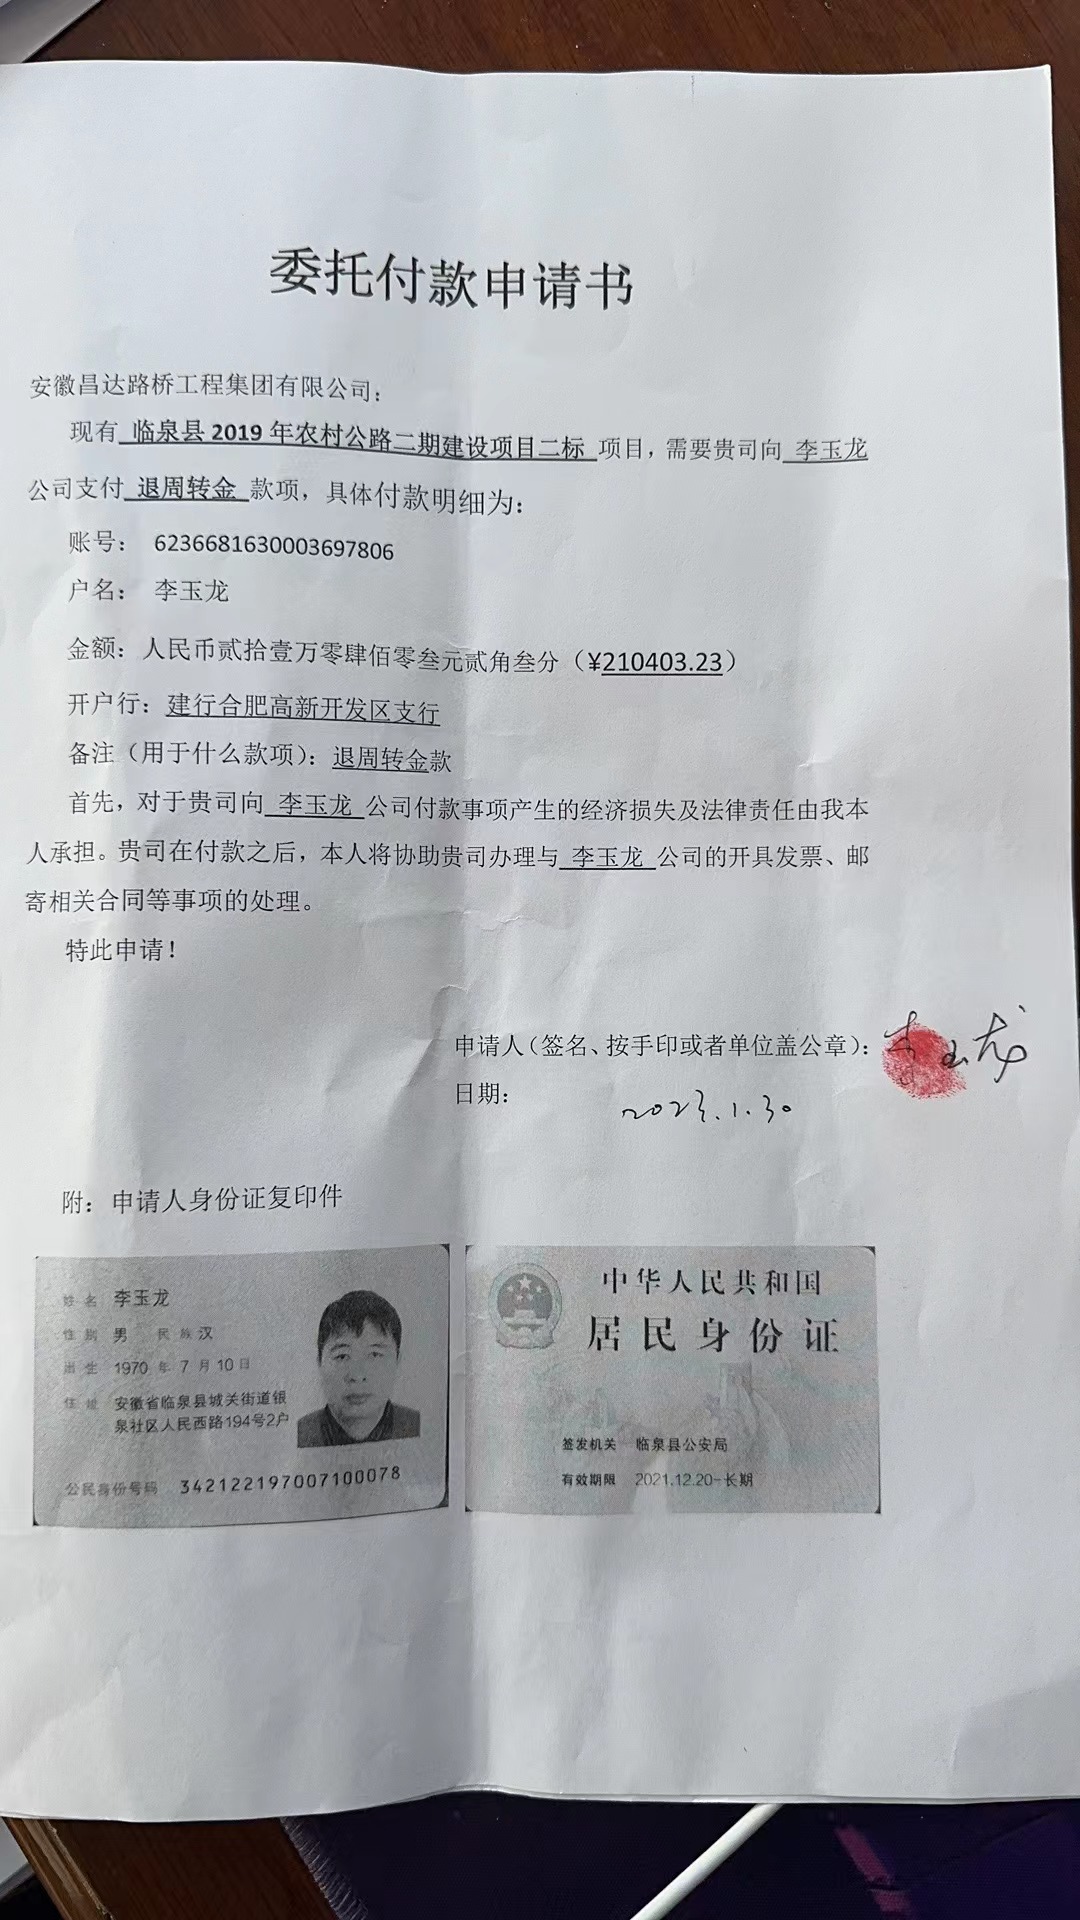 委托付款申请书
安徽昌达路桥工程集团有限公司：
现有 临泉县 2019 年农村公路二期建设项目二标 项目，需要贵司向 李玉龙
公司支付 退周转金 款项，具体付款明细为：
账号： 6236681630003697806
户名： 李玉龙
金额：人民币贰拾壹万零肆佰零叁元贰角叁分（¥210403.23）
开户行：建行合肥高新开发区支行
备注（用于什么款项）：退周转金款
首先，对于贵司向 李玉龙 公司付款事项产生的经济损失及法律责任由我本
人承担。贵司在付款之后，本人将协助贵司办理与 李玉龙 公司的开具发票、邮
寄相关合同等事项的处理。
特此申请！
申请人（签名、按手印或者单位盖公章）：李玉龙
日期： 2023.1.30
附：申请人身份证复印件
姓名 李玉龙
性别 男 民族 汉
出生 1970 年 7 月 10 日
住址 安徽省临泉县城关街道银
泉社区人民西路194号2户
公民身份号码 342122197007100078
中华人民共和国
居民身份证
签发机关 临泉县公安局
有效期限 2021.12.20-长期